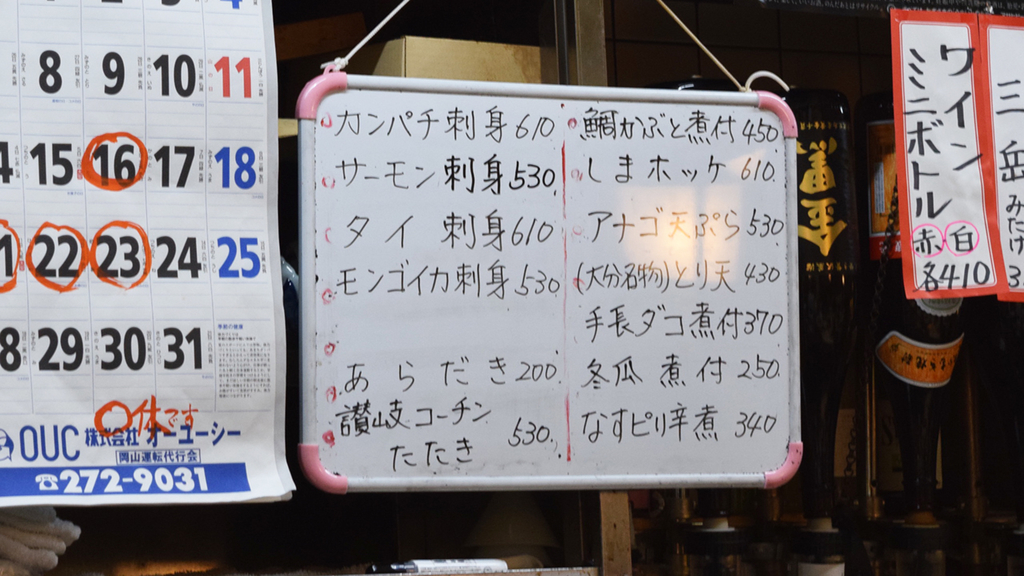 8 9 10 11
15 16 17 18
22 23 24 25
29 30 31
○休です
OUC 株式会社 オーユーシー
岡山運転代行会
☎272-9031
カンパチ刺身 610
サーモン刺身 530
タイ 刺身 610
モンゴイカ刺身 530
あらだき 200
讃岐コーチン
たたき 530.
鯛かぶと煮付 450
しまホッケ 610.
アナゴ天ぷら 530
(大分名物)とり天 430
手長ダコ煮付 370
冬瓜煮付 250.
なすピリ辛煮 340
ワイン
ミニボトル
赤白
各410
三岳みたけ